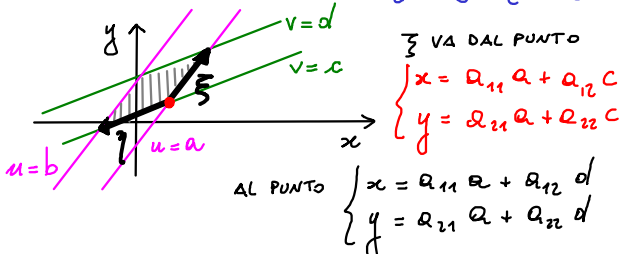 y
v = d
v = c
ξ
η
u = a
u = b
x
ξ VA DAL PUNTO
x = a₁₁ a + a₁₂ c
y = a₂₁ a + a₂₂ c
AL PUNTO
x = a₁₁ a + a₁₂ d
y = a₂₁ a + a₂₂ d